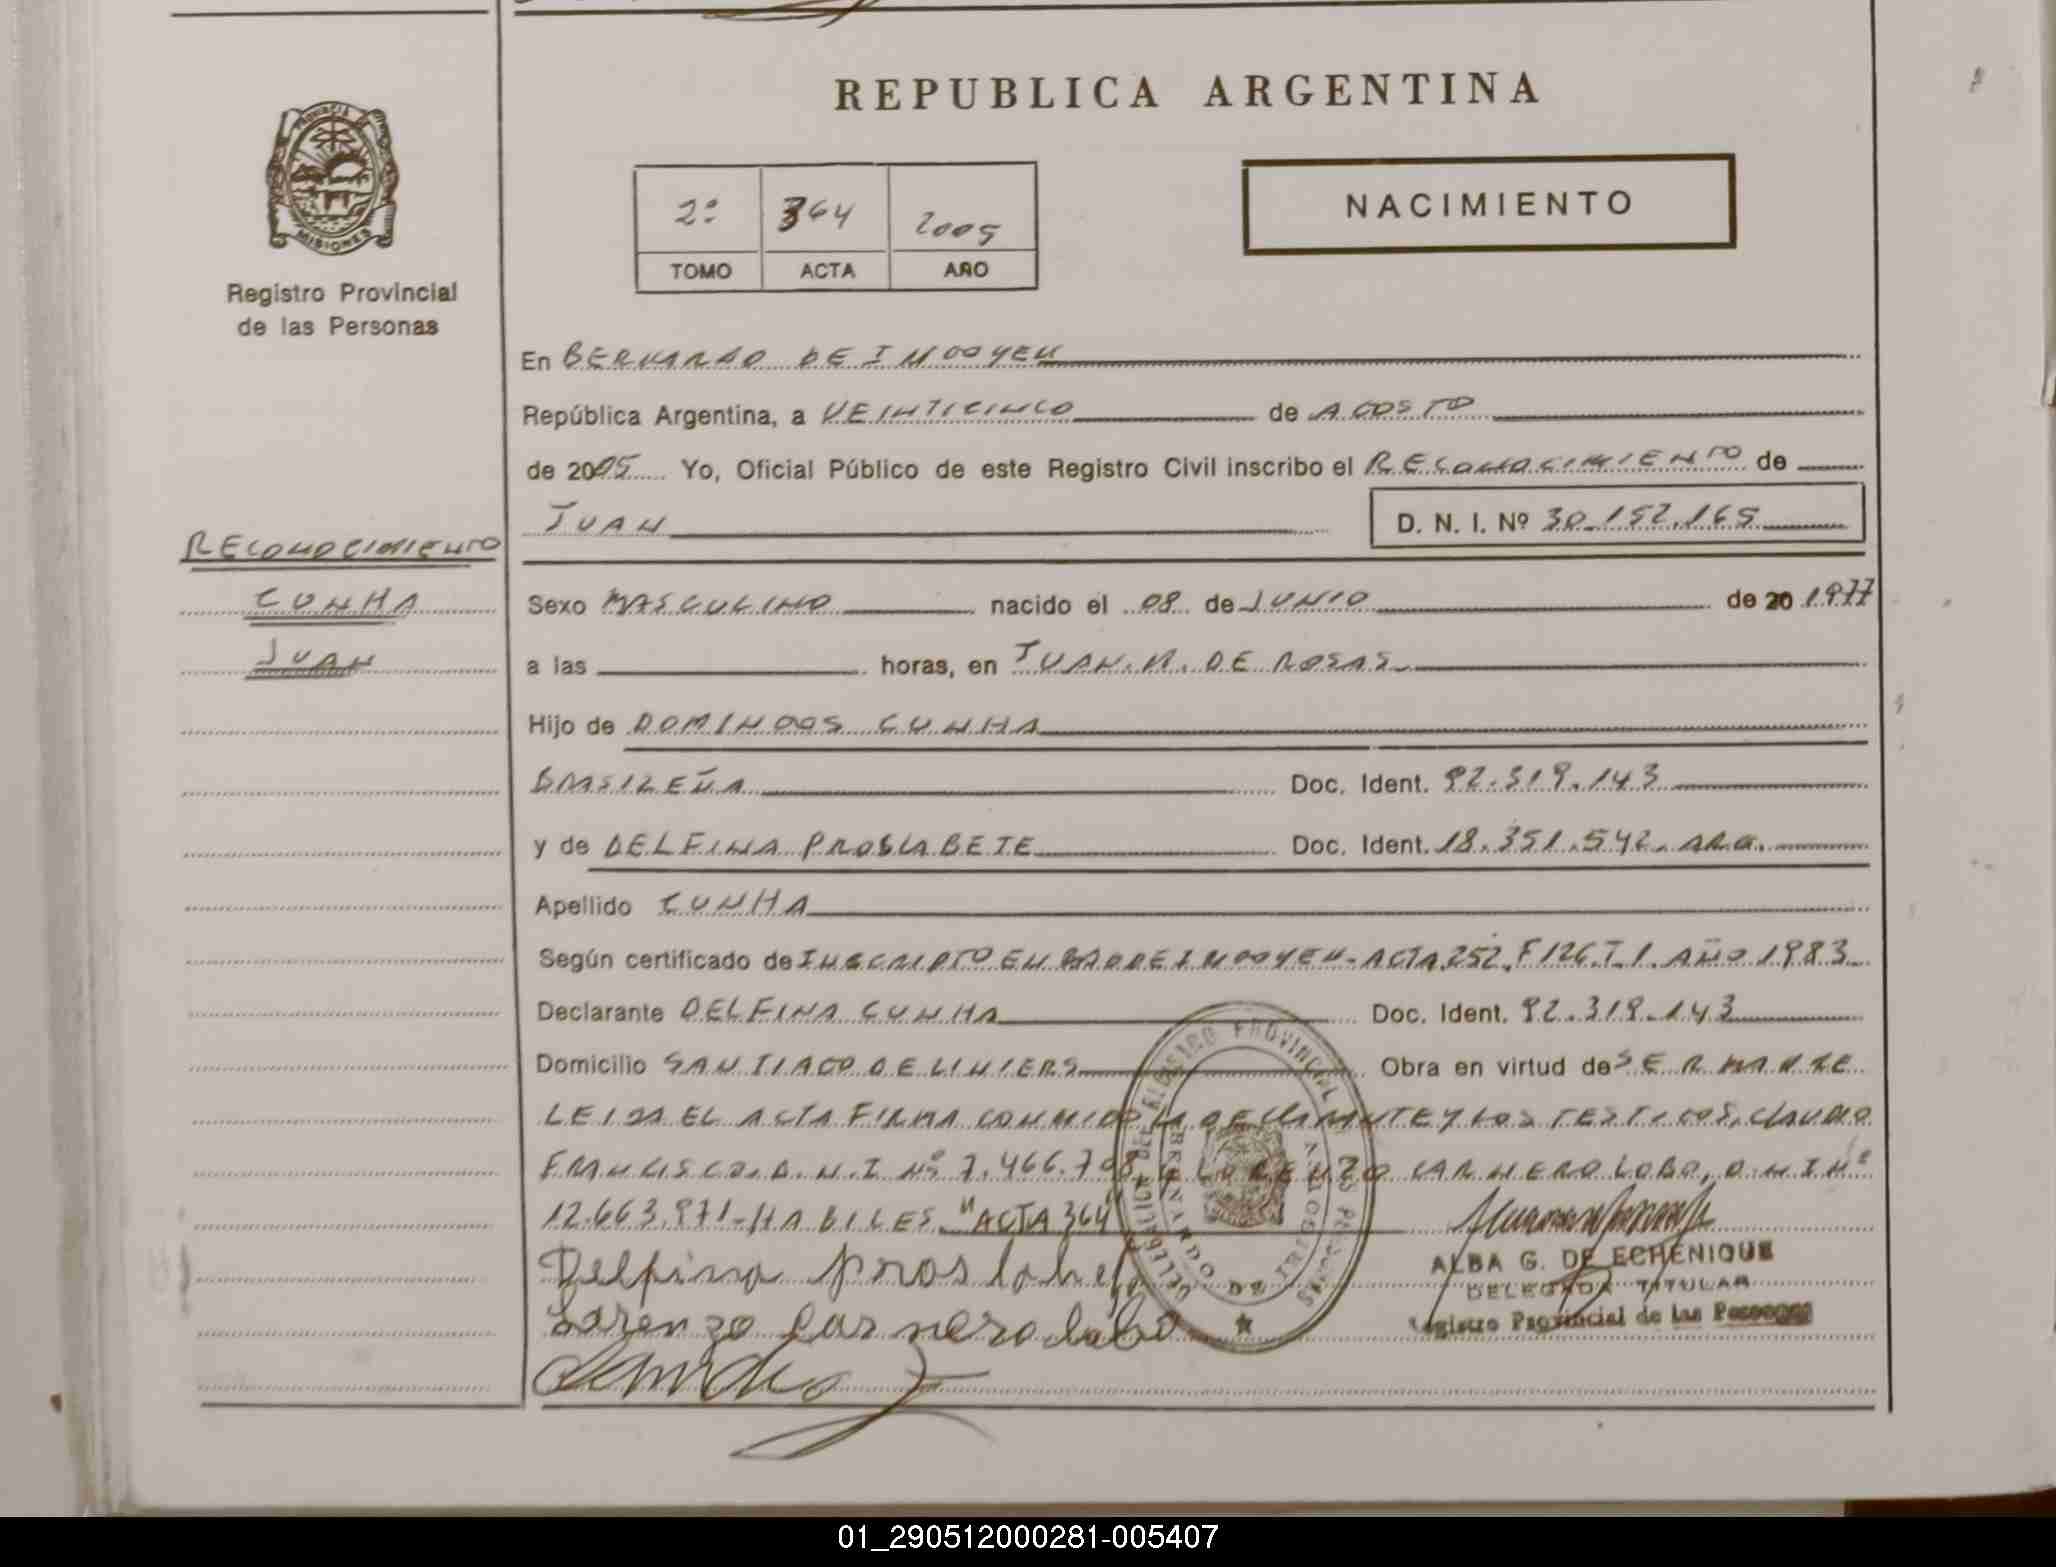 REPUBLICA ARGENTINA
PROVINCIA DE
MISIONES
Registro Provincial
de las Personas
2º 364 2005
TOMO ACTA AÑO
NACIMIENTO
En BERNARDO DE IRIGOYEN
República Argentina, a VEINTICINCO de AGOSTO
de 2005 Yo, Oficial Público de este Registro Civil inscribo el RECONOCIMIENTO de
JUAN D. N. I. Nº 30.152.165
RECONOCIMIENTO
CUNHA
JUAN
Sexo MASCULINO nacido el 08 de JUNIO de 20 1977
a las horas, en JUAN. M. DE ROSAS
Hijo de DOMINGOS CUNHA
BRASILEÑA Doc. Ident. 92.319.143
y de DELFINA PROSLABETE Doc. Ident. 18.351.542. ARG.
Apellido CUNHA
Según certificado de INSCRIPTO EN ACTA 252. F 126. T. 1. AÑO 1983
Declarante DELFINA CUNHA Doc. Ident. 92.319.143
Domicilio SANTIAGO DE LINIERS Obra en virtud de SER MADRE
LEIDA EL ACTA FIRMA CONMIGO LA DECLARANTE Y LOS TESTIGOS, CLAUDIO
FRANCISCO. D. N. I Nº 7.466.708 y LORENZO CARNERO LOBO, D.N.I Nº
12.663.971-HABILES. "ACTA 364"
Delfina proslabete
Lorenzo Carnero lobo
ALBA G. DE ECHENIQUE
DELEGADA TITULAR
Registro Provincial de las Personas
REGISTRO PROVINCIAL DE LAS PERSONAS
BERNARDO DE IRIGOYEN
01_290512000281-005407